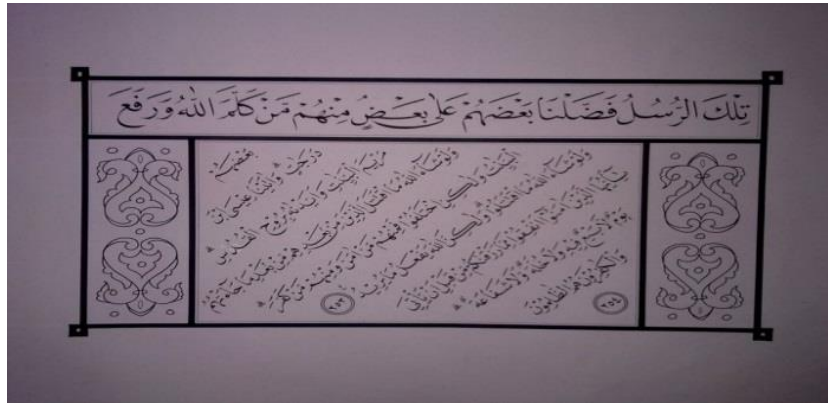 تِلْكَ الرُّسُلُ فَضَّلْنَا بَعْضَهُمْ عَلَى بَعْضٍ مِنْهُمْ مَنْ كَلَّمَ اللهُ وَرَفَعَ
بَعْضَهُمْ
دَرَجَاتٍ وَآتَيْنَا عِيسَى ابْنَ
مَرْيَمَ الْبَيِّنَاتِ وَأَيَّدْنَاهُ بِرُوحِ الْقُدُسِ
وَلَوْ شَاءَ اللهُ مَا اقْتَتَلَ الَّذِينَ مِنْ بَعْدِهِمْ مِنْ بَعْدِ مَا جَاءَتْهُمُ
الْبَيِّنَاتُ وَلَكِنِ اخْتَلَفُوا فَمِنْهُمْ مَنْ آمَنَ وَمِنْهُمْ مَنْ كَفَرَ
وَلَوْ شَاءَ اللهُ مَا اقْتَتَلُوا وَلَكِنَّ اللهَ يَفْعَلُ مَا يُرِيدُ ٢٥٣
يَا أَيُّهَا الَّذِينَ آمَنُوا أَنْفِقُوا مِمَّا رَزَقْنَاكُمْ مِنْ قَبْلِ أَنْ يَأْتِيَ
يَوْمٌ لَا بَيْعٌ فِيهِ وَلَا خُلَّةٌ وَلَا شَفَاعَةٌ
وَالْكَافِرُونَ هُمُ الظَّالِمُونَ ٢٥٤